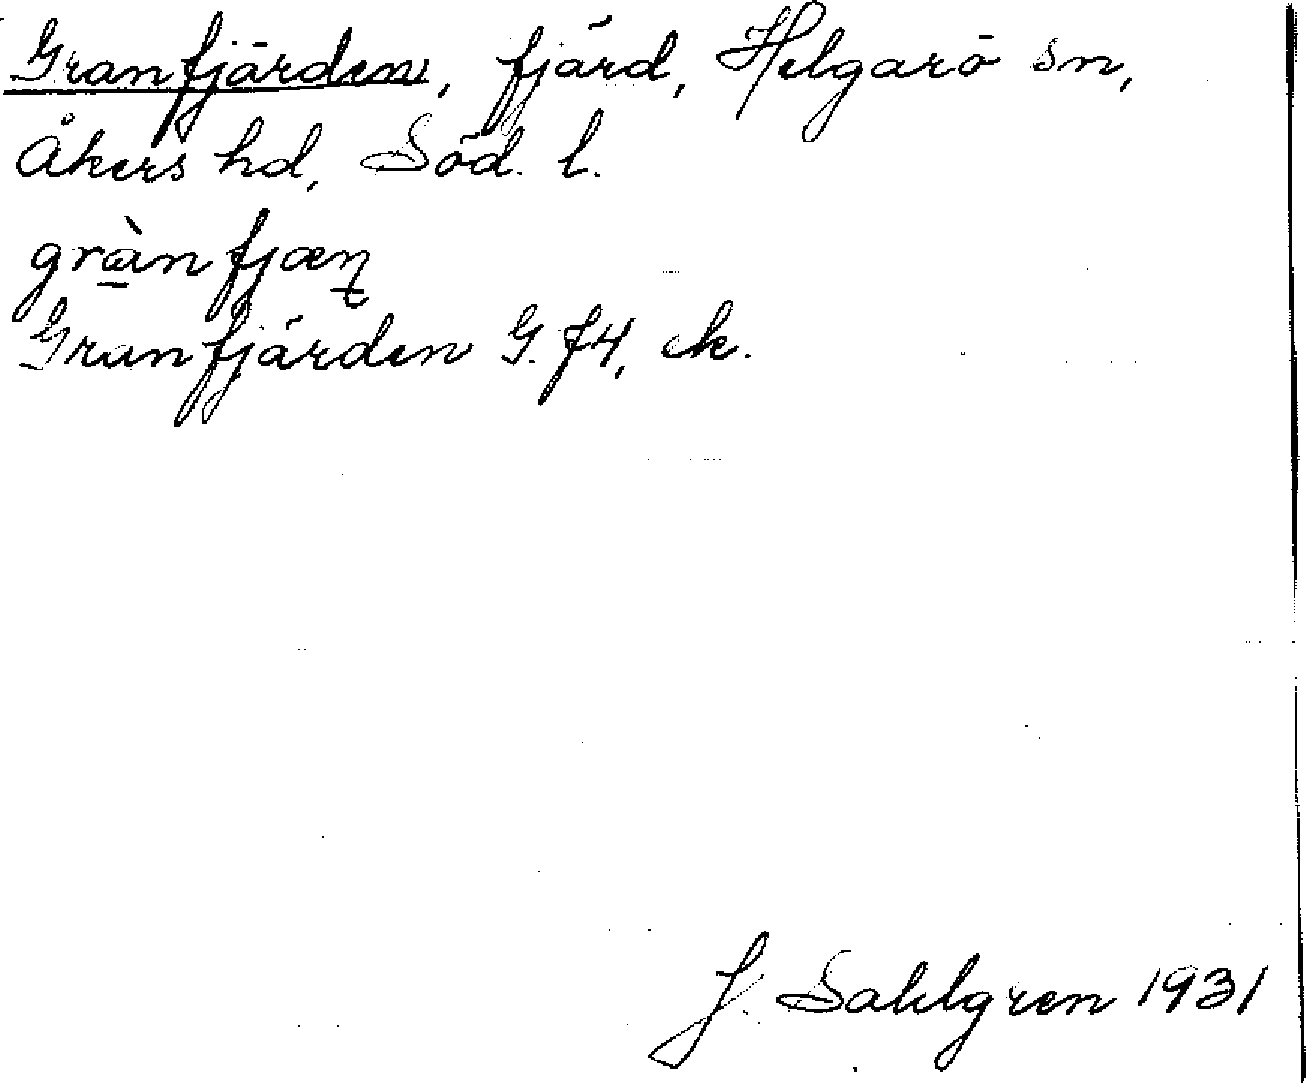 Granfjärden, fjärd, Helgarö sn,
Åkers hd, Söd. l.
grà̱nfjæn̨
Granfjärden G. f4, ek.
J. Sahlgren 1931